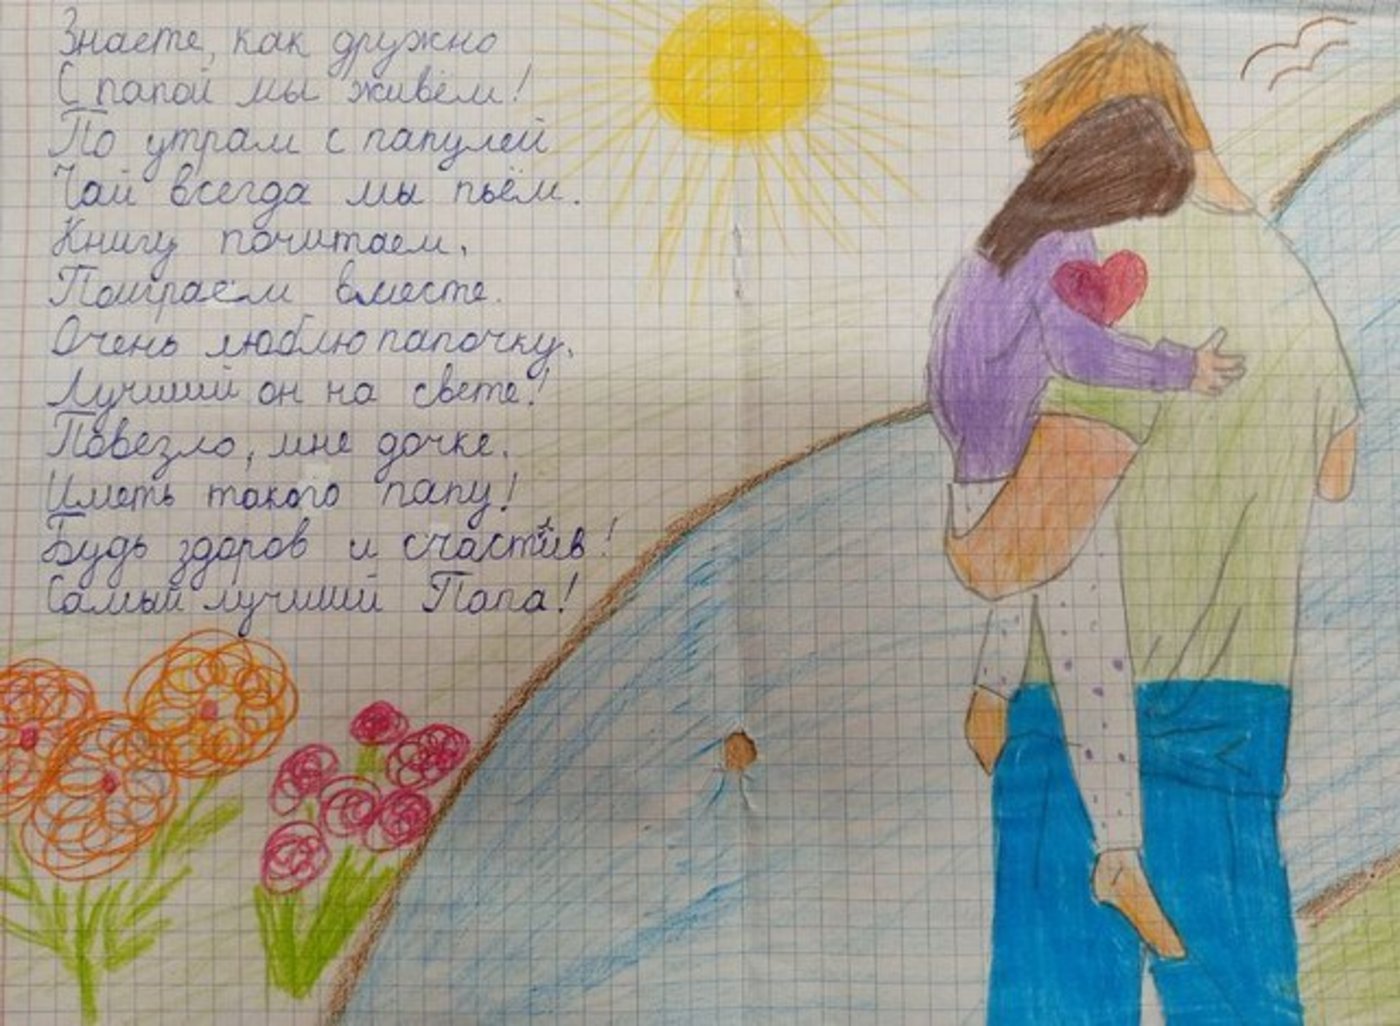 Знаете, как дружно
С папой мы живём!
По утрам с папулей
Чай всегда мы пьём.
Книгу почитаем,
Поиграем вместе.
Очень люблю папочку,
Лучший он на свете!
Повезло, мне дочке,
Иметь такого папу!
Будь здоров и счастлив!
Самый лучший Папа!